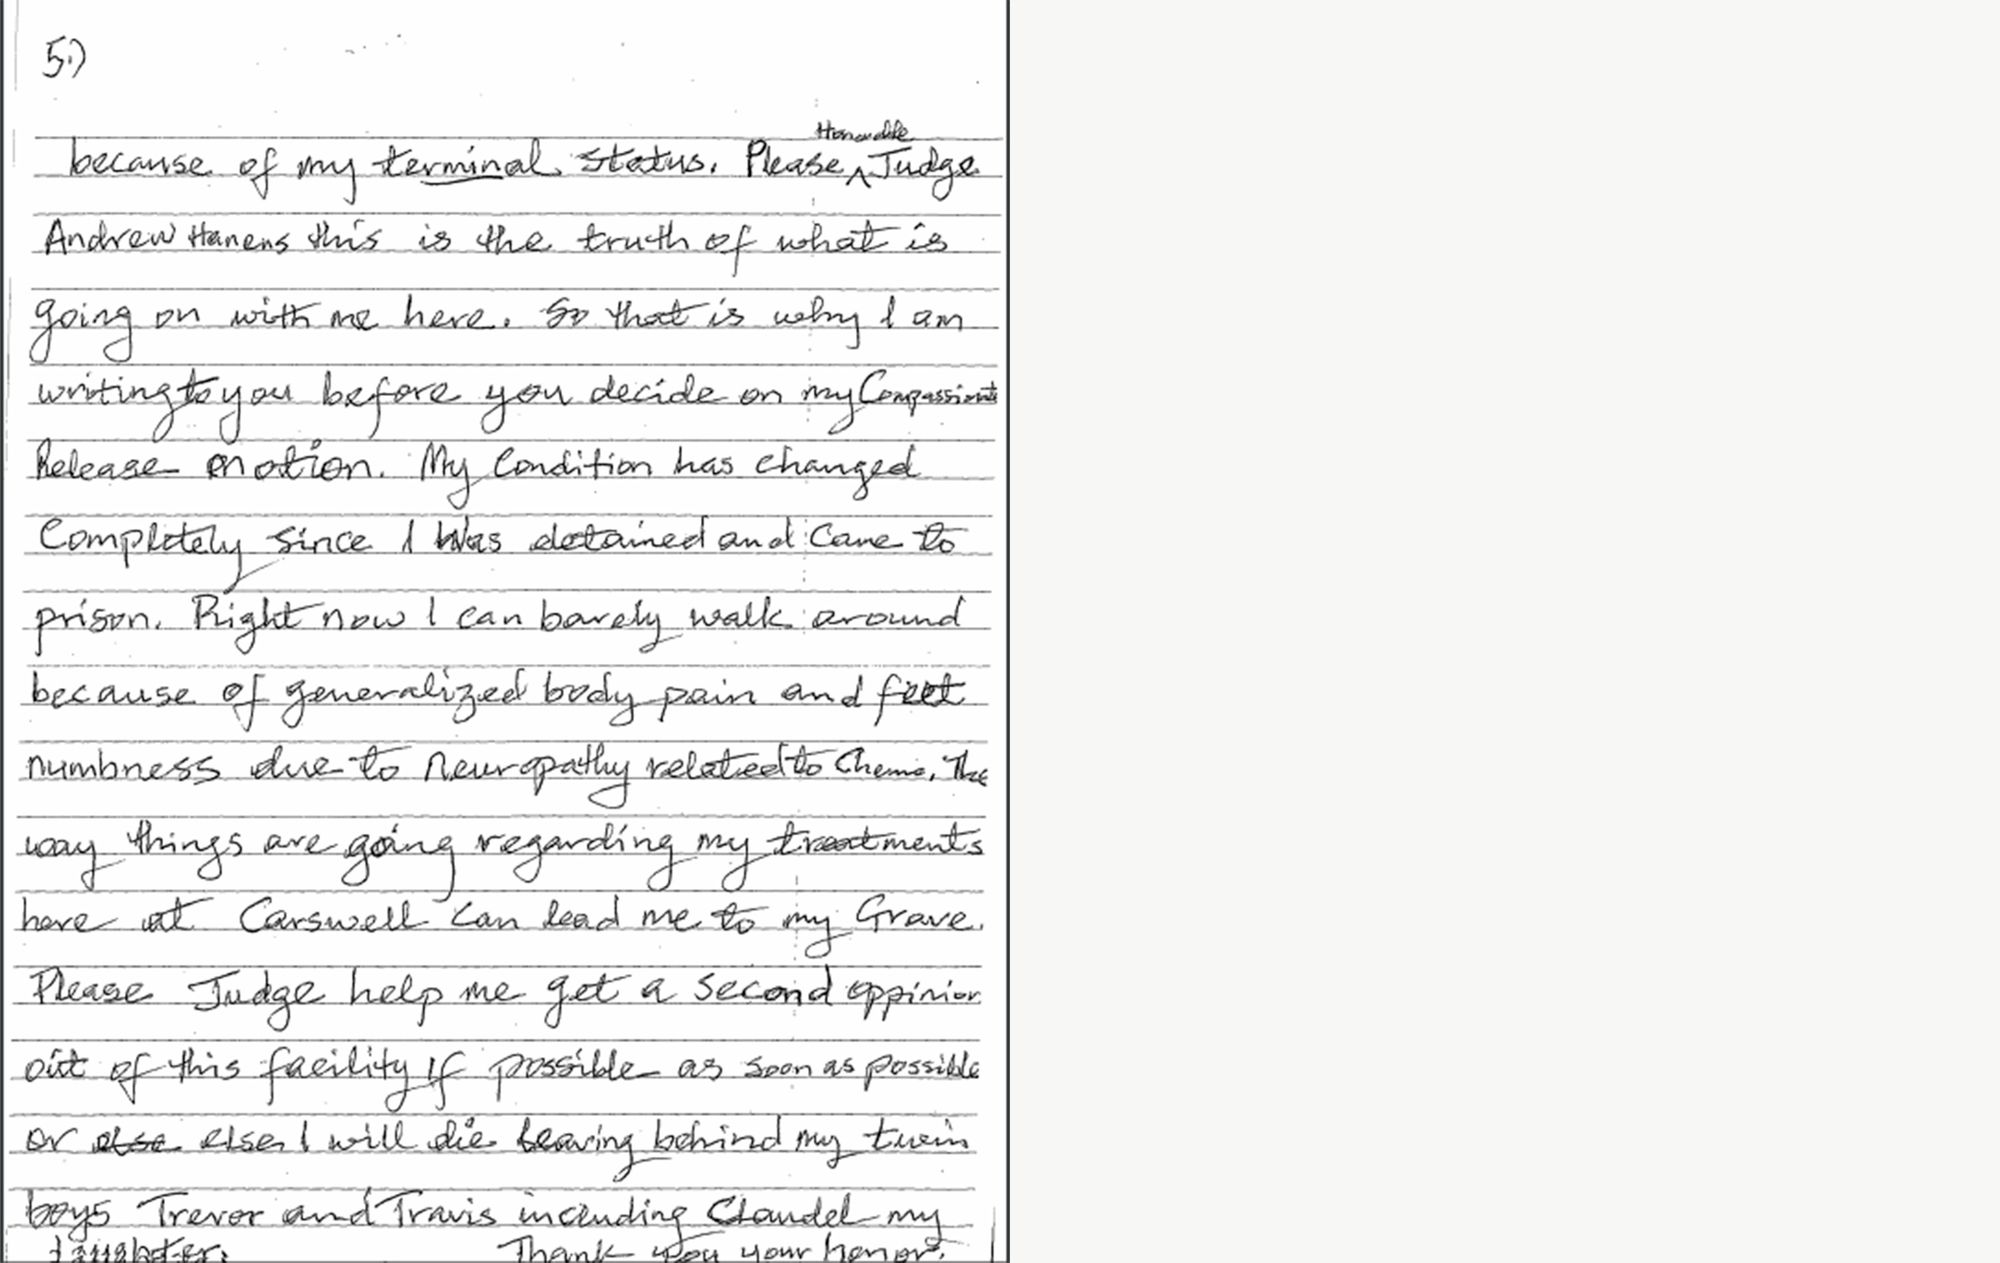 5.)
because of my terminal status. Please ^ Honorable Judge
Andrew Hanens this is the truth of what is
going on with me here. So that is why I am
writing to you before you decide on my Compassionate
Release motion. My Condition has changed
Completely since I Was detained and Came to
prison. Right now I can barely walk around
because of generalized body pain and feet
numbness due to Neuropathy related to Chemo. The
way things are going regarding my treatments
here at Carswell can lead me to my Grave.
Please Judge help me get a second oppinion
out of this facility if possible as soon as possible
or else else I will die leaving behind my twin
boys Trevor and Travis including Claudel my
daughter. Thank you your honor.